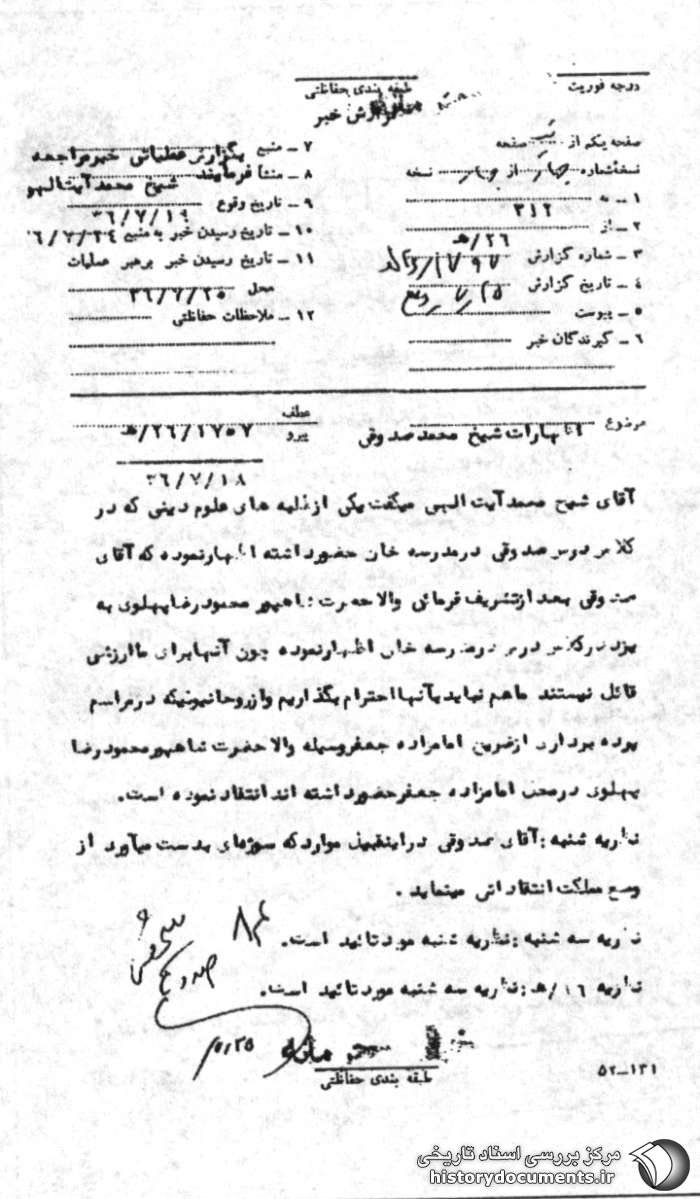 درجه فوریت
طبقه بندی حفاظتی
گزارش خبر
صفحه یکم از یک صفحه
نسخه شماره چهار از چهار نسخه
۱ ــ به ۳۱۲
۲ ــ از ۲۶/هـ
۳ ــ شماره گزارش
۴ ــ تاریخ گزارش
۵ ــ پیوست
۶ ــ گیرندگان خبر
۷ ــ منبع بگزارش عملیاتی خبر مراجعه فرمایند
۸ ــ منشأ شیخ محمد آیت‌الهی
۹ ــ تاریخ وقوع ۳۶/۷/۱۹
۱۰ ــ تاریخ رسیدن خبر به منبع ۶/۷/۲۴
۱۱ ــ تاریخ رسیدن خبر برهبر عملیات
محل ۳۶/۷/۲۵
۱۲ ــ ملاحظات حفاظتی
موضوع اظهارات شیخ محمد صدوقی
عطف
پیرو ۱۷۵۷/۲۶/هـ
۳۶/۷/۱۸
آقای شیخ محمد آیت الهی میگفت یکی از طلبه های علوم دینی که در
کلاس درس صدوقی در مدرسه خان حضور داشته اظهار نموده که آقای
صدوقی بعد از تشریف فرمائی والاحضرت شاهپور محمود رضا پهلوی به
یزد در کلاس درس در مدرسه خان اظهار نموده چون آنها برای ما ارزشی
قائل نیستند ما هم نباید بآنها احترام بگذاریم و از روحانیونیکه در مراسم
پرده برداری از ضریح امامزاده جعفر وسیله والاحضرت شاهپور محمود رضا
پهلوی در صحن امامزاده جعفر حضور داشته اند انتقاد نموده است.
نظریه شنبه : آقای صدوقی در اینقبیل موارد که سوژه‌ای بدست میآورد از
وضع مملکت انتقاداتی مینماید .
نظریه سه شنبه : نظریه شنبه مورد تائید است.
نظریه ۲۶/هـ : نظریه سه شنبه مورد تائید است.
صدوقی
طبقه بندی حفاظتی
۵۲ــ۱۳۱
مرکز بررسی اسناد تاریخی
historydocuments.ir